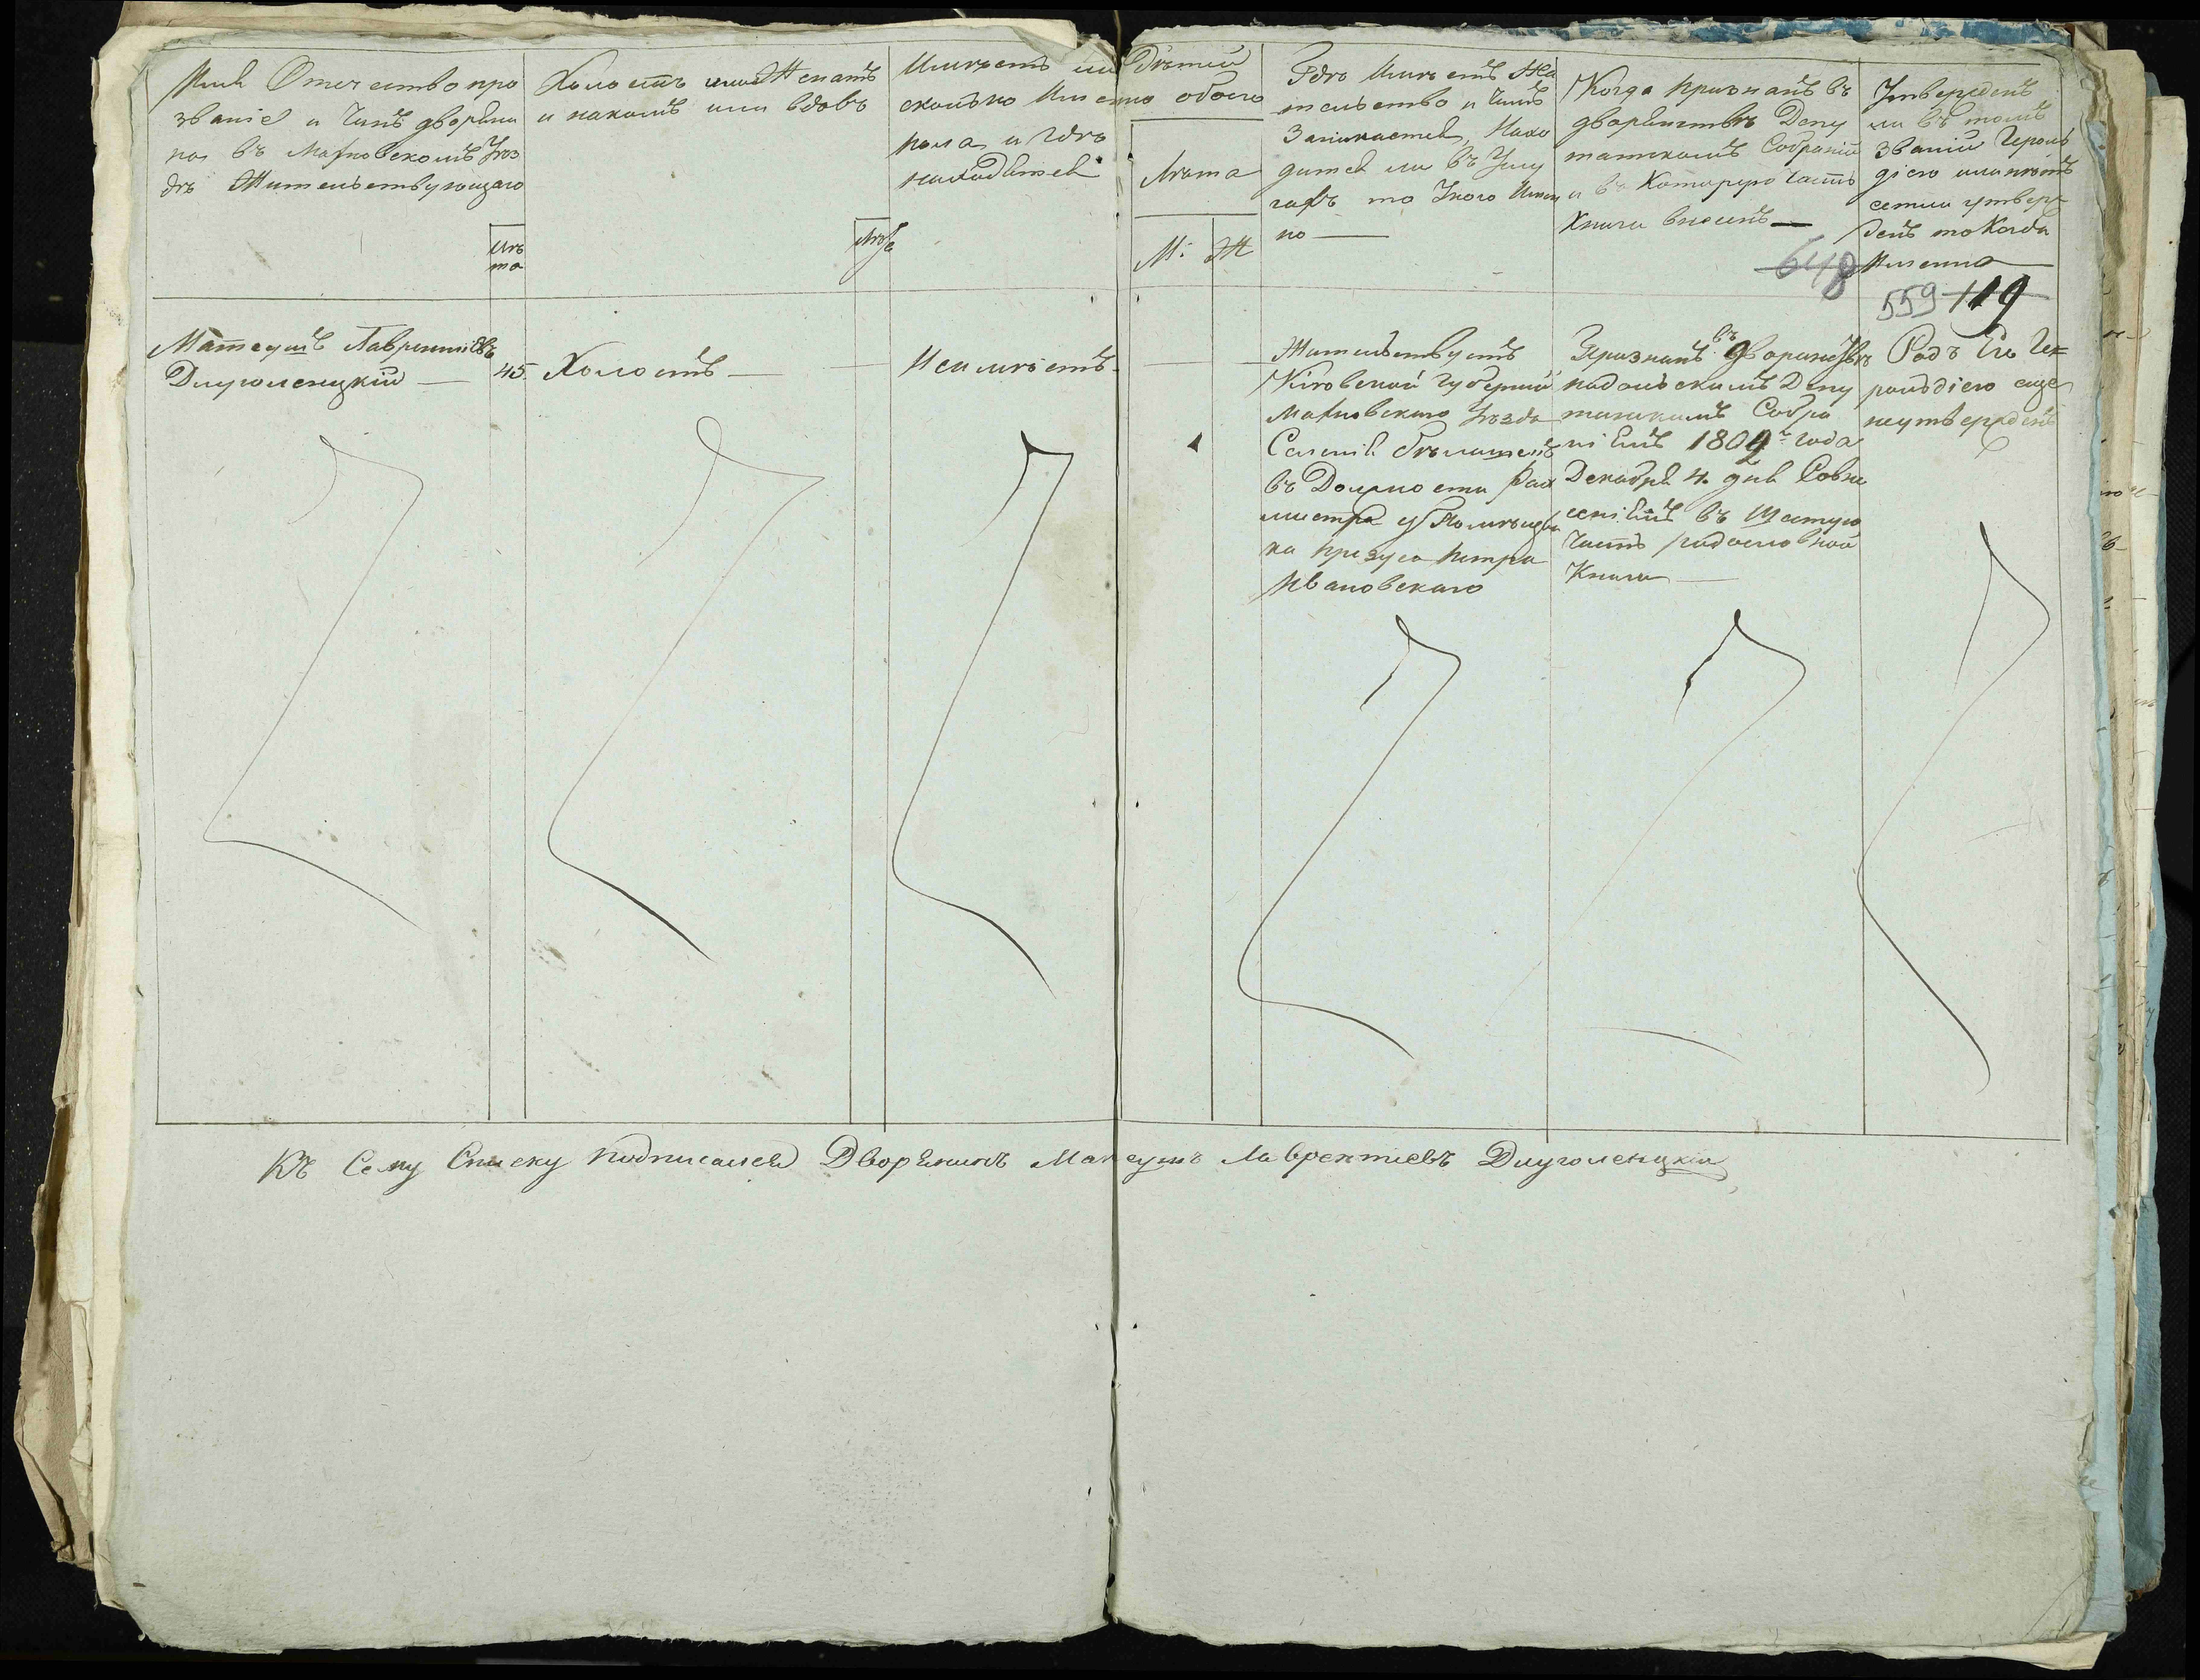 Имя Отчество про
званіе и Чинъ дворяни
на въ Махновскомъ Уѣз
дѣ Жительствующаго
Лѣ
та
Холостъ или Женатъ
и накомъ или вдовъ
Лѣта
Имѣетъ ли Дѣтей
сколько Именно обоего
пола и Гдѣ
находятся
Лѣта
М: Ж
Гдѣ Имѣетъ Жи
тельство и Чимъ
Занимается, Нахо
дится ли въ Услу
гахъ то Укого Имен
но —
Когда признанъ въ
дворянствѣ Депу
татскомъ Собраніи
и въ Которую Часть
Книги внесенъ —
Утвержденъ
ли въ томъ
Званіи Героль
діею или нѣтъ
естли утверж
денъ то Когда
Именно
648
559 119
Матеушъ Лаврентіевъ
Длуголенцкій —
45.
Холостъ —
Неимѣетъ —
Жительствуетъ
Кіевской Губерніи
Махновскаго Уѣзда
въ Должности
Ивановскаго
Признанъ въ Дворянствѣ
подольскимъ Депу
татскимъ Собра
ніемъ 1809 года
Декабря 4. дня Совне
сеніемъ въ Шестую
Часть родословной
Книги —
Родъ Его Ге
рольдіею еще
неутвержденъ
Къ Сему Списку подписался Дворянинъ Матеушъ Лаврентіевъ Длуголенцкій